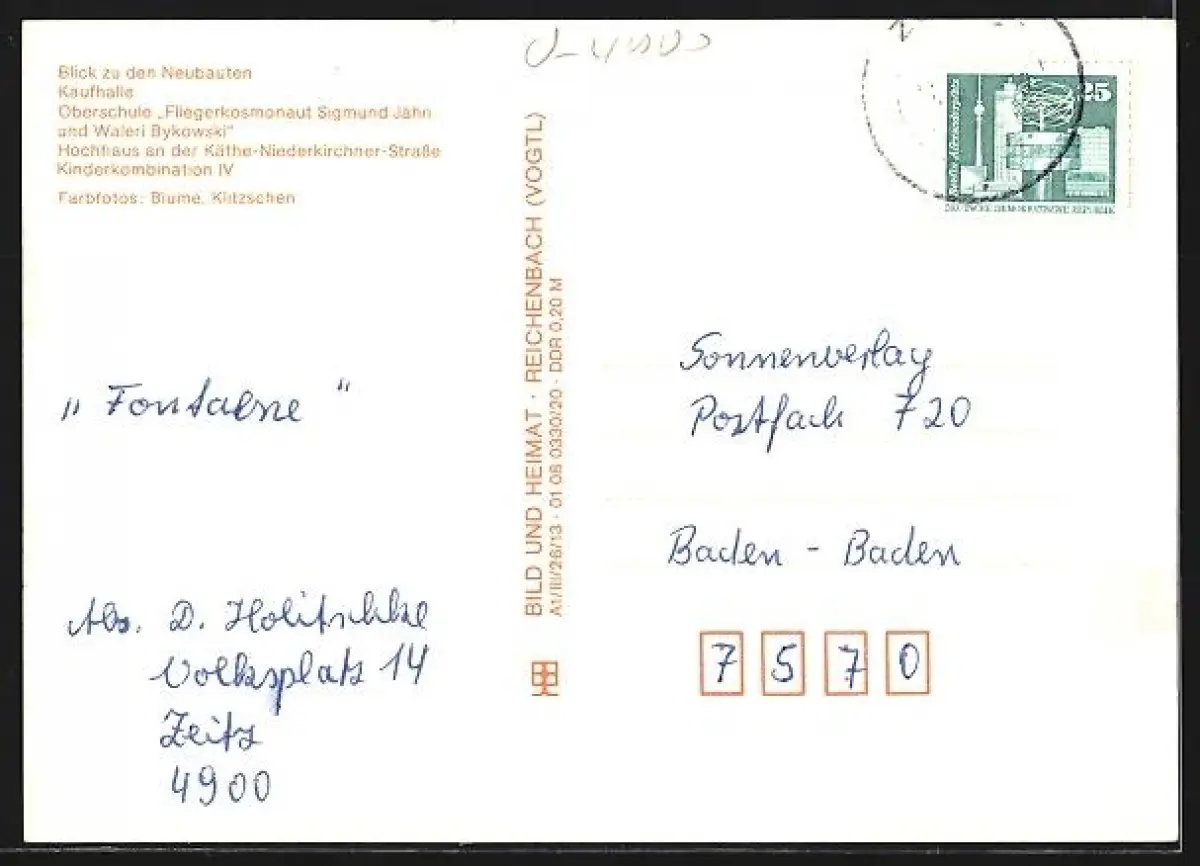 Blick zu den Neubauten
Kaufhalle
Oberschule „Fliegerkosmonaut Sigmund Jähn
und Waleri Bykowski"
Hochhaus an der Käthe-Niederkirchner-Straße
Kinderkombination IV
Farbfotos: Blume, Klitzschen
„Fontaene"
Abs. D. Holitschke
Volksplatz 14
Zeitz
4900
BILD UND HEIMAT · REICHENBACH (VOGTL)
A1/III/26/13 · 01 08 0330/20 · DDR 0,20 M
25
Berlin, Alexanderplatz
DEUTSCHE DEMOKRATISCHE REPUBLIK
Sonnenverlag
Postfach 720
Baden - Baden
7 5 7 0